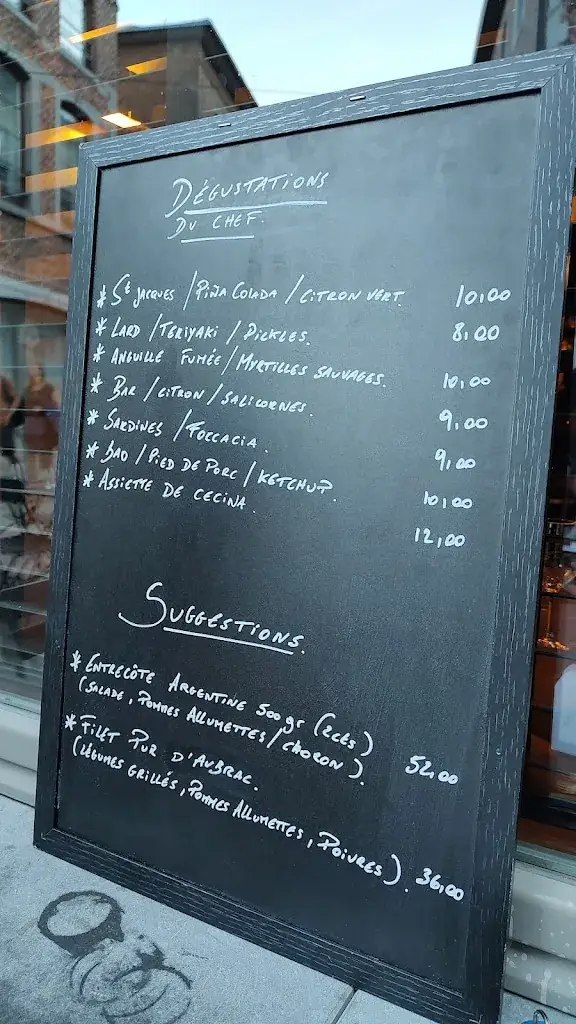 DÉGUSTATIONS
DU CHEF.
* St JACQUES / PIÑA COLADA / CITRON VERT. 10,00
* LARD / TERIYAKI / PICKLES. 8,00
* ANGUILLE FUMÉE / MYRTILLES SAUVAGES. 10,00
* BAR / CITRON / SALICORNES. 9,00
* SARDINES / FOCCACIA. 9,00
* BAO / PIED DE PORC / KETCHUP. 10,00
* ASSIETTE DE CECINA. 12,00
SUGGESTIONS.
* ENTRECÔTE ARGENTINE 500gr (2cts)
(SALADE, POMMES ALLUMETTES / CHORON). 52,00
* FILET PUR D'AUBRAC.
(LÉGUMES GRILLÉS, POMMES ALLUMETTES, POIVRES). 36,00